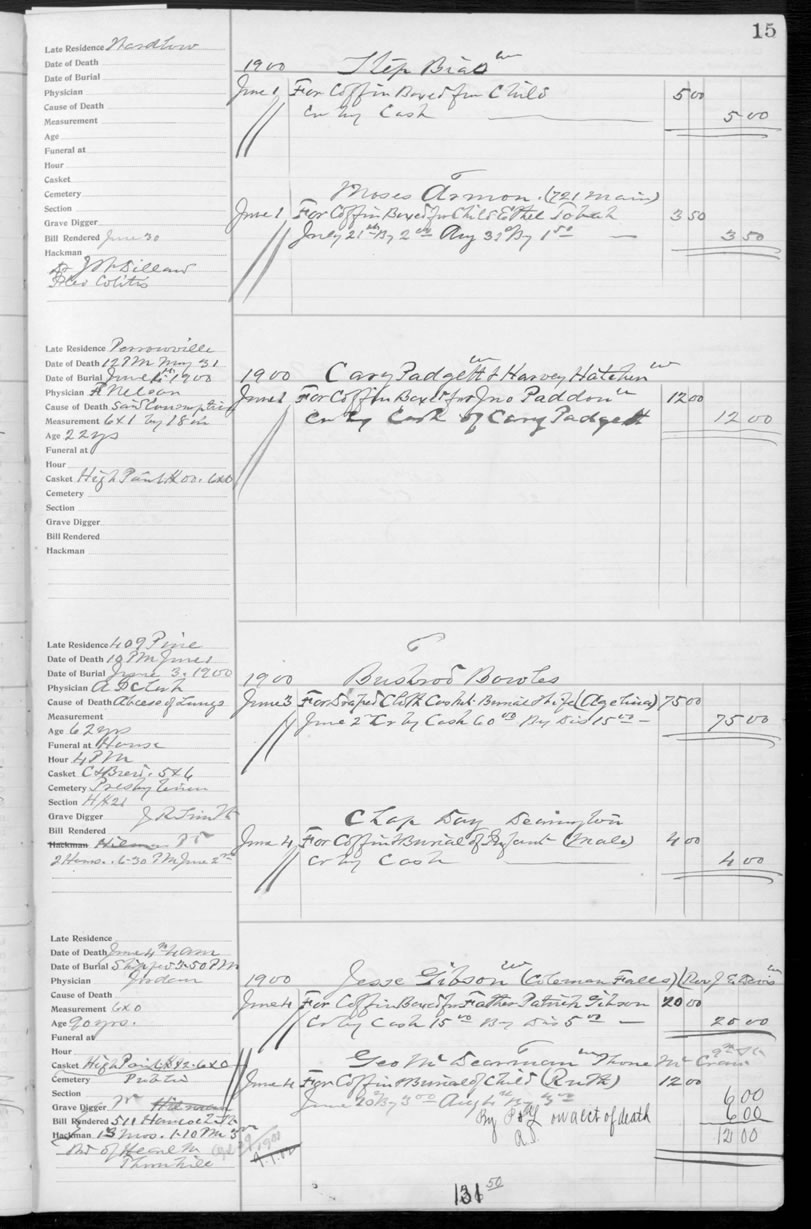 15
Late Residence
Date of Death
Date of Burial
Physician
Cause of Death
Measurement
Age
Funeral at
Hour
Casket
Cemetery
Section
Grave Digger
Bill Rendered June 30
Hackman
Dr
Colitis
1900 Step Bias
June 1 For Coffin Boxed for Child 5 00
Cr by Cash 5 00
Moses Armon. (721 Main)
June 1 For Coffin Boxed for Child Ethel 3 50
July 21st By 2 00 Aug 31st By 1 50 — 3 50
Late Residence Perrowville
Date of Death 12 PM May 31
Date of Burial June 1st 1900
Physician Nelson
Cause of Death Said Consumption
Measurement 6x1 by 18 in
Age 22 yrs
Funeral at
Hour
Casket High Paint 00. 6x0
Cemetery
Section
Grave Digger
Bill Rendered
Hackman
1900 Cary Padgett & Harvey
June 1 For Coffin Boxed for Jno Paddon 12 00
Cr by Cash of Cary Padgett 12 00
Late Residence 409 Pine
Date of Death 10 PM June 1
Date of Burial June 3. 1900
Physician A D
Cause of Death Abcess of Lungs
Measurement
Age 62 yrs
Funeral at House
Hour 4 PM
Casket 5x6
Cemetery Presbyterian
Section
Grave Digger
Bill Rendered
Hackman
6-30 PM June 2nd
1900 Bushrod Bowles
June 3 For Draped Cloth Casket Burial of Wife (Agelina) 75 00
June 2nd Cr by Cash 60 00 By Dis 15 00 — 75 00
Chap Day Dearington
June 4 For Coffin & Burial of Infant (Male) 4 00
Cr by Cash 4 00
Late Residence
Date of Death June 4th 4 am
Date of Burial Shipped 3-50 PM
Physician Jordan
Cause of Death
Measurement 6x0
Age 90 yrs.
Funeral at
Hour
Casket High Paint 6x0
Cemetery Public
Section
Grave Digger
Bill Rendered 511 Hancock St
Hackman 13 Mos. 1-10 PM
Thornhill
1900 Jesse Gibson (Coleman Falls) (Rev J E Davis
June 4 For Coffin Boxed for Father Patrick Gibson 20 00
Cr by Cash 15 00 By Dis 5 00 — 20 00
Geo Mc Dearman Phone
June 4 For Coffin & Burial of Child (Ruth) 12 00
June By 3 00 Aug By 3 00 6 00
By P & L on acct of death 6 00
12 00
131 50